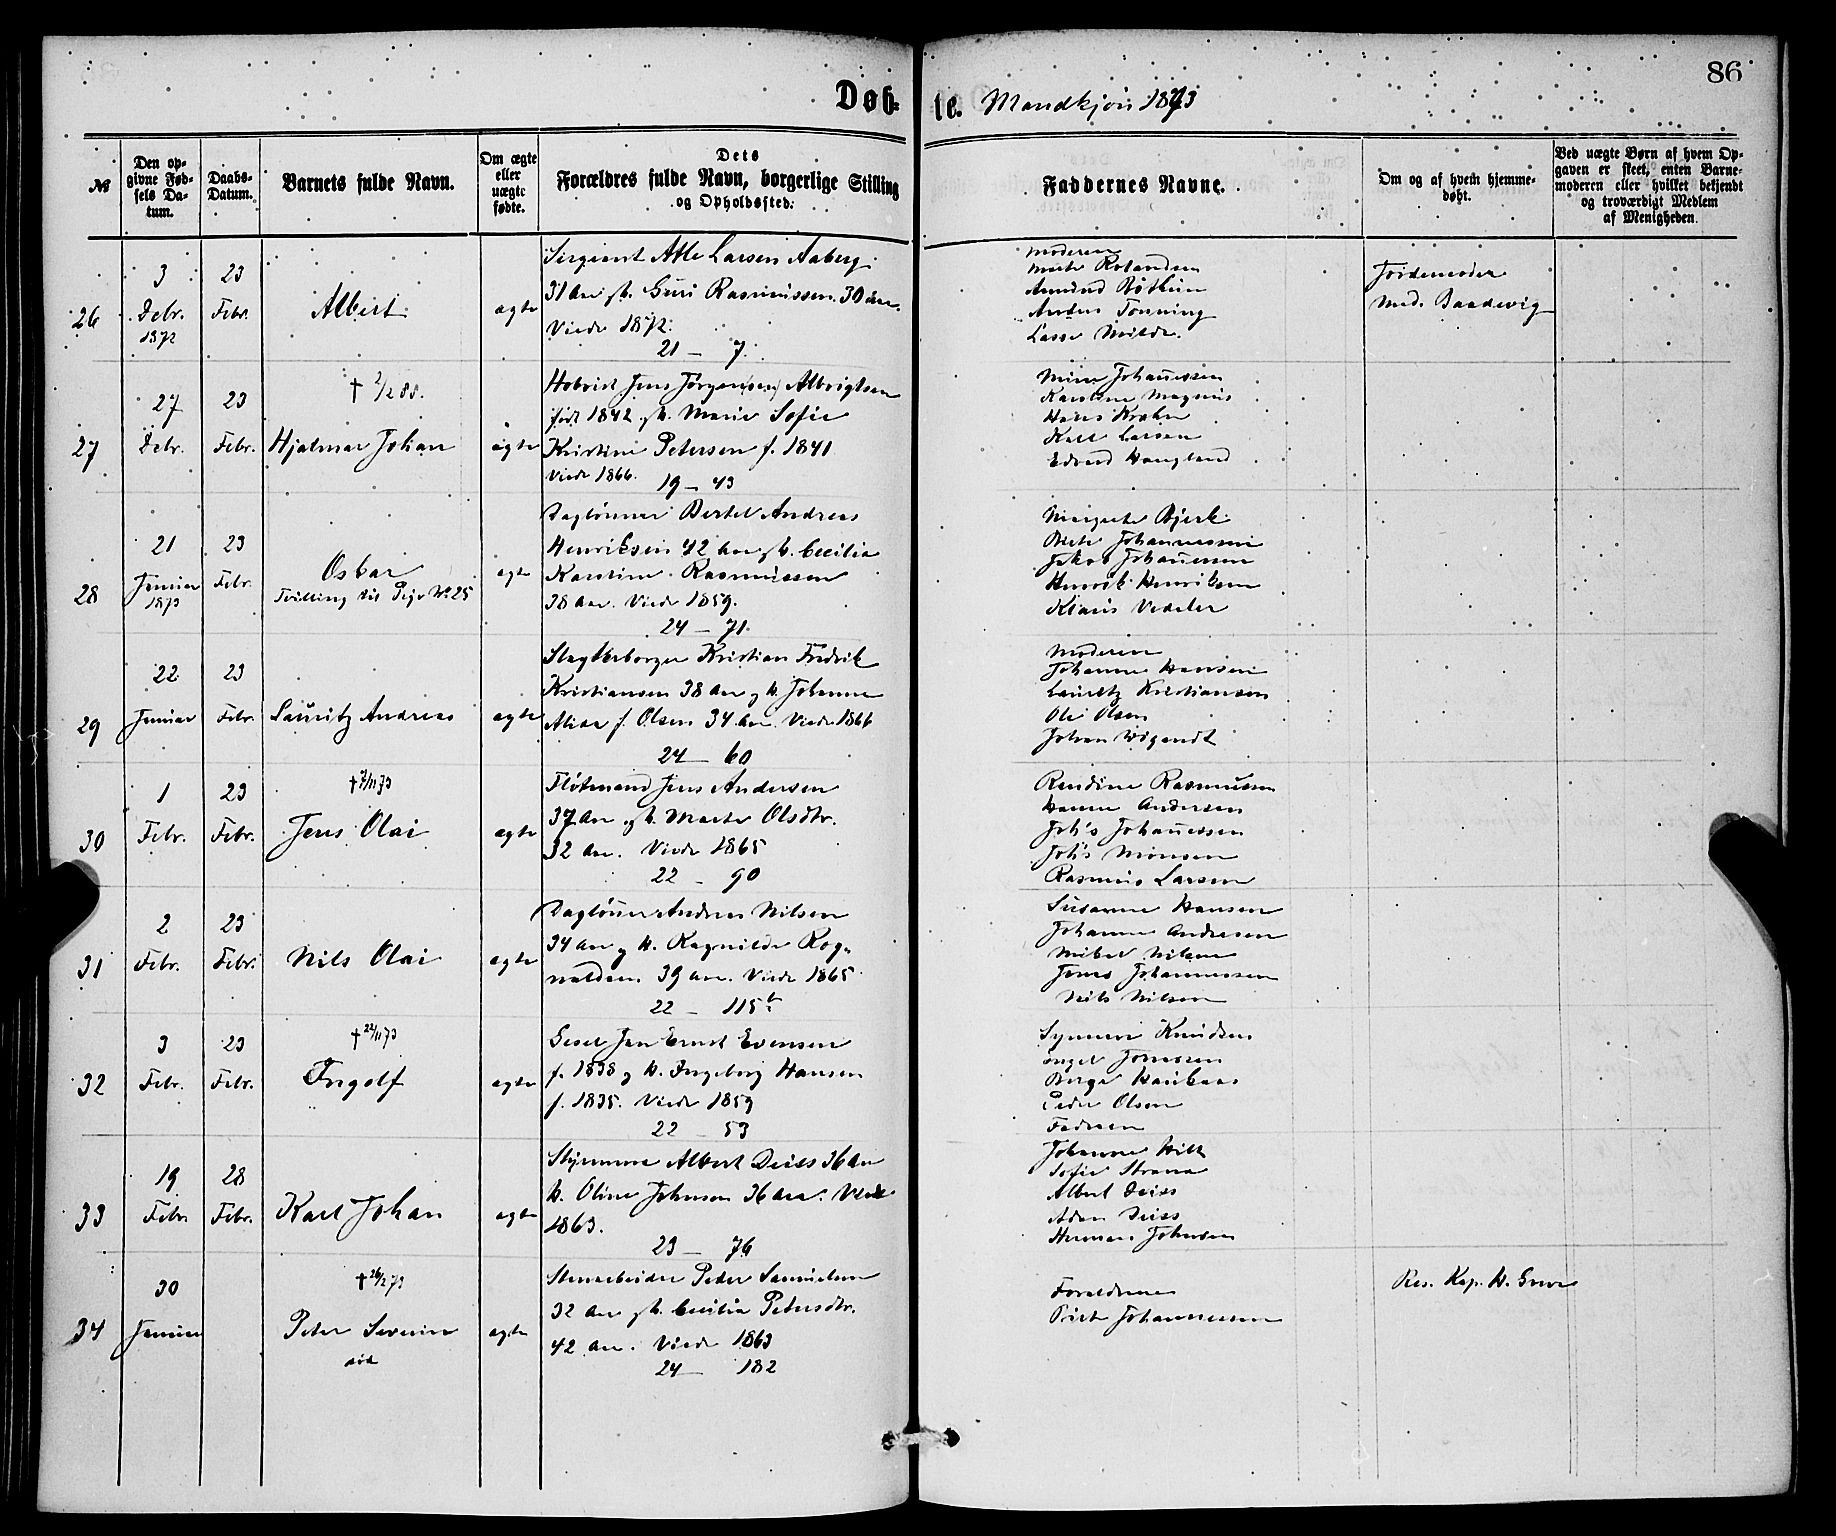 86
Døb-te. Mandkjøn 1873
№
Den opgivne Fødsels Datum.
Daabs-Datum.
Barnets fulde Navn.
Om ægte eller uægte fødte.
Dets Forældres fulde Navn, borgerlige Stilling og Opholdssted.
Faddernes Navne.
Om og af hvem hjemmedøbt.
Ved uægte Børn af hvem Opgaven er skeet, enten Barnemoderen eller hvilket bekjendt og troværdigt Medlem af Menigheden.
26
3 Debr. 1872
23 Febr.
Albert
ægte
Sergeant Atle Larsen Aaberg
31 Aar g h. Guri Rasmussen 30 Aar.
Viede 1872.
21 — 7
Moderen
Marte Rolandsen
Amund
Anders Tonning
Lasse Milde.
Jordemoder
Mad. Baadevig
27
27 Debr.
23 Febr.
† 2/2 88.
Hjalmar Johan
ægte
Jens Jørgen(sen) Albrigtsen
født 1842 g h. Marie Sofie
Kristine Petersen f. 1841
Viede 1866.
19 — 43
Mina Johannessen
Karoline Magnus
Hans Krohn
Karl Larsen
Edvard Haugland
28
21 Januar 1873
23 Febr.
Oskar
Tvilling til Pige No 25
ægte
Daglønner Bertel Andreas
Henriksen 42 Aar g h. Cecilia
Karoline Rasmussen
38 Aar. Viede 1859.
24 — 71.
Margrete Bjerk
Johannessen
Jakob Johannessen
Henrik Henriksen
Klaus Vedeler
29
22 Januar
23 Febr.
Lauritz Andreas
ægte
Slagterborger Kristian Fredrik
Kristiansen 38 Aar g h. Johanne
f. Olsen 34 Aar. Viede 1866
24 — 60
Moderen
Johanne Hansen
Lauritz Kristiansen
Ole Olsen
Johan Wigandt
30
1 Febr.
23 Febr.
† 7/11 73
Jens Olai
ægte
Fløtmand Jens Andersen
37 Aar g h. Marte Olsdtr.
32 Aar. Viede 1865
22 — 90
Randine Rasmussen
Hanna Andersen
Joh's Johannessen
Joh's Monsen
Rasmus Larsen
31
2 Febr.
23 Febr.
Nils Olai
ægte
Dagløner Andreas Nilsen
34 Aar g h. Ragnilde Rognaldsen 39 Aar. Viede 1865
22 — 115 b
Susanne Hansen
Johanne Andresen
Mikal Nilsen
Jonas Johannessen
Nils Nilsen
32
3 Febr.
23 Febr.
† 22/11 73
Ingolf
ægte
Gesel Jan Ernst Evensen
f. 1838 g h. Ingeborg Hansen
f. 1835. Viede 1859
22 — 53
Synneve Knudsen
Engel Jonassen
Børge Haukaas
Peder Olsen
Faderen
33
19 Febr.
28 Febr.
Karl Johan
ægte
Styrmand Albert Deiss 36 Aar
h. Oline Johnsen 36 Aar. Viede
1863.
23 — 76
Johanne Hill
Sofie
Albert Deiss
Adam Deiss
Herman Johnsen
34
30 Januar
† 26/2 73
Peter Severin
ægte
Stenarbeider Peder Samuelsen
32 Aar g h. Cecilia Petersdtr.
42 Aar. Viede 1863
24 — 182
Forældrene
Johannessen
Res. Kap. H. Greve